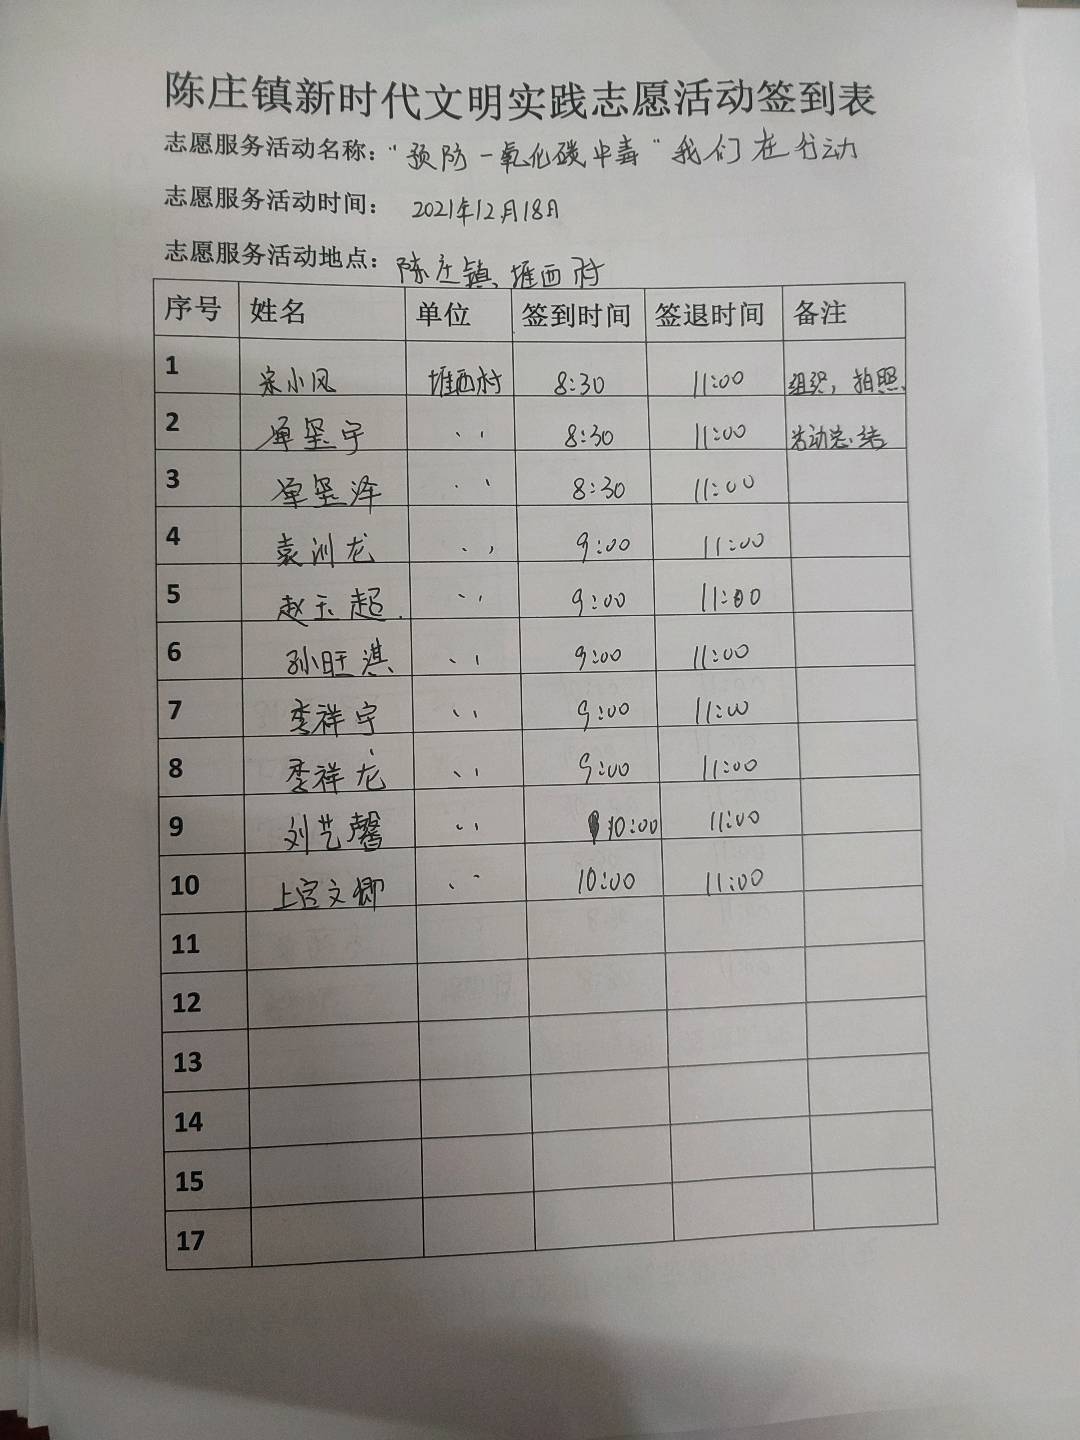 陈庄镇新时代文明实践志愿活动签到表
志愿服务活动名称："预防一氧化碳中毒"我们在行动
志愿服务活动时间： 2021年12月18日
志愿服务活动地点：陈庄镇、堆西村
序号 姓名 单位 签到时间 签退时间 备注
1 宋小风 堆西村 8:30 11:00 组织，拍照、
2 单玺宇 、、 8:30 11:00 活动总结
3 单玺泽 、、 8:30 11:00
4 袁洲龙 、、 9:00 11:00
5 赵玉超 、、 9:00 11:00
6 孙旺淇 、、 9:00 11:00
7 李祥宇 、、 9:00 11:00
8 李祥龙 、、 9:00 11:00
9 刘艺馨 、、 10:00 11:00
10 上官文卿 、、 10:00 11:00
11
12
13
14
15
17